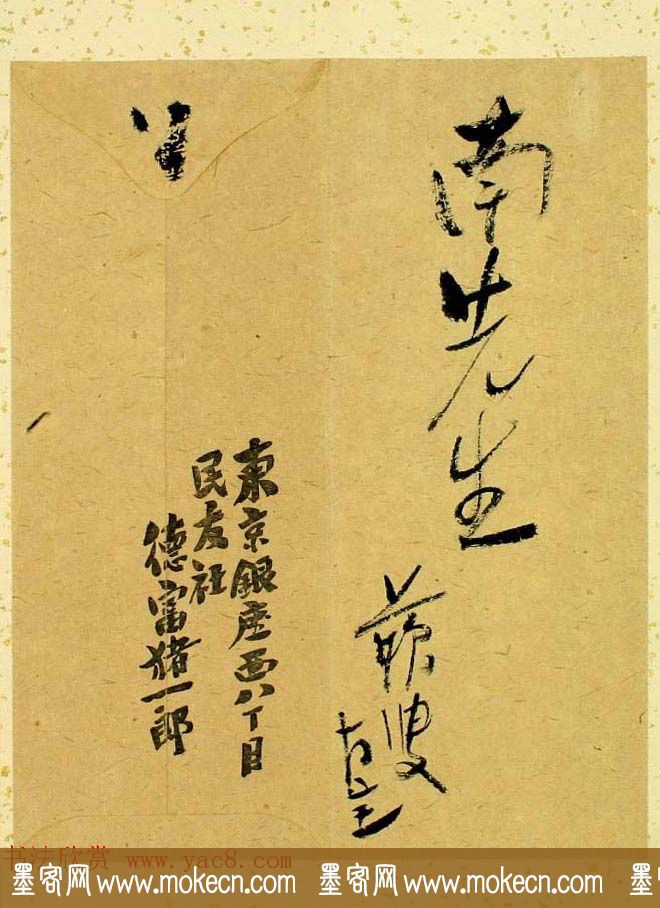 南先生
蘇叟
東京銀座西八丁目
民友社
德富猪一郎
书法欣赏 www.yac8.com
墨客网 www.mokecn.com 墨客网 www.mokecn.com